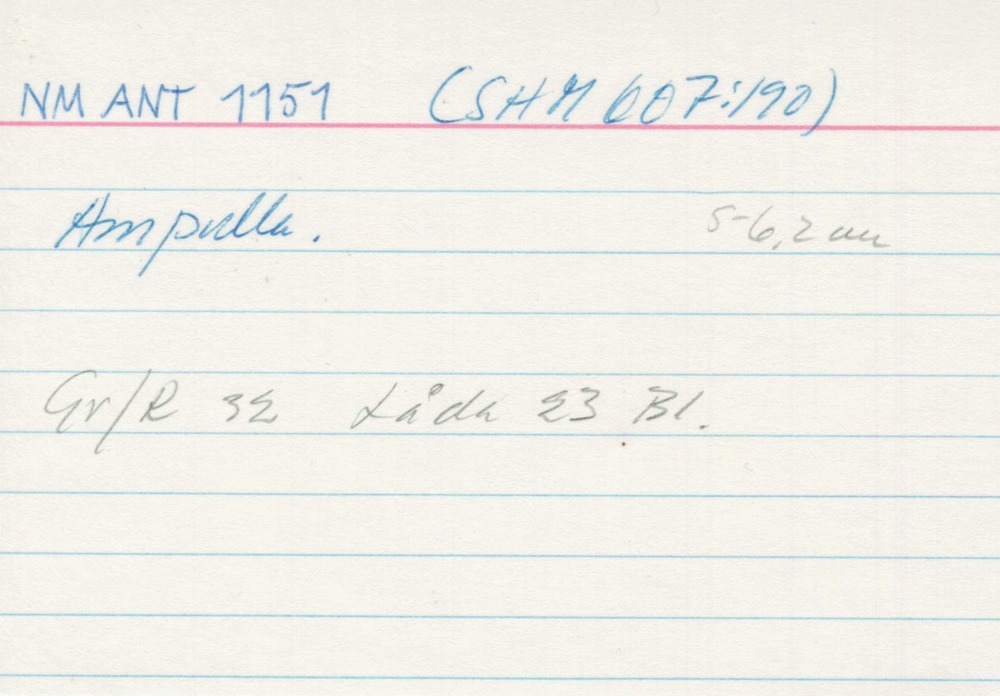 NM ANT 1151 (SHM 607:190)
Ampulla. 5-6,2 cm
Gr/R 32 Låda 23 Bl.